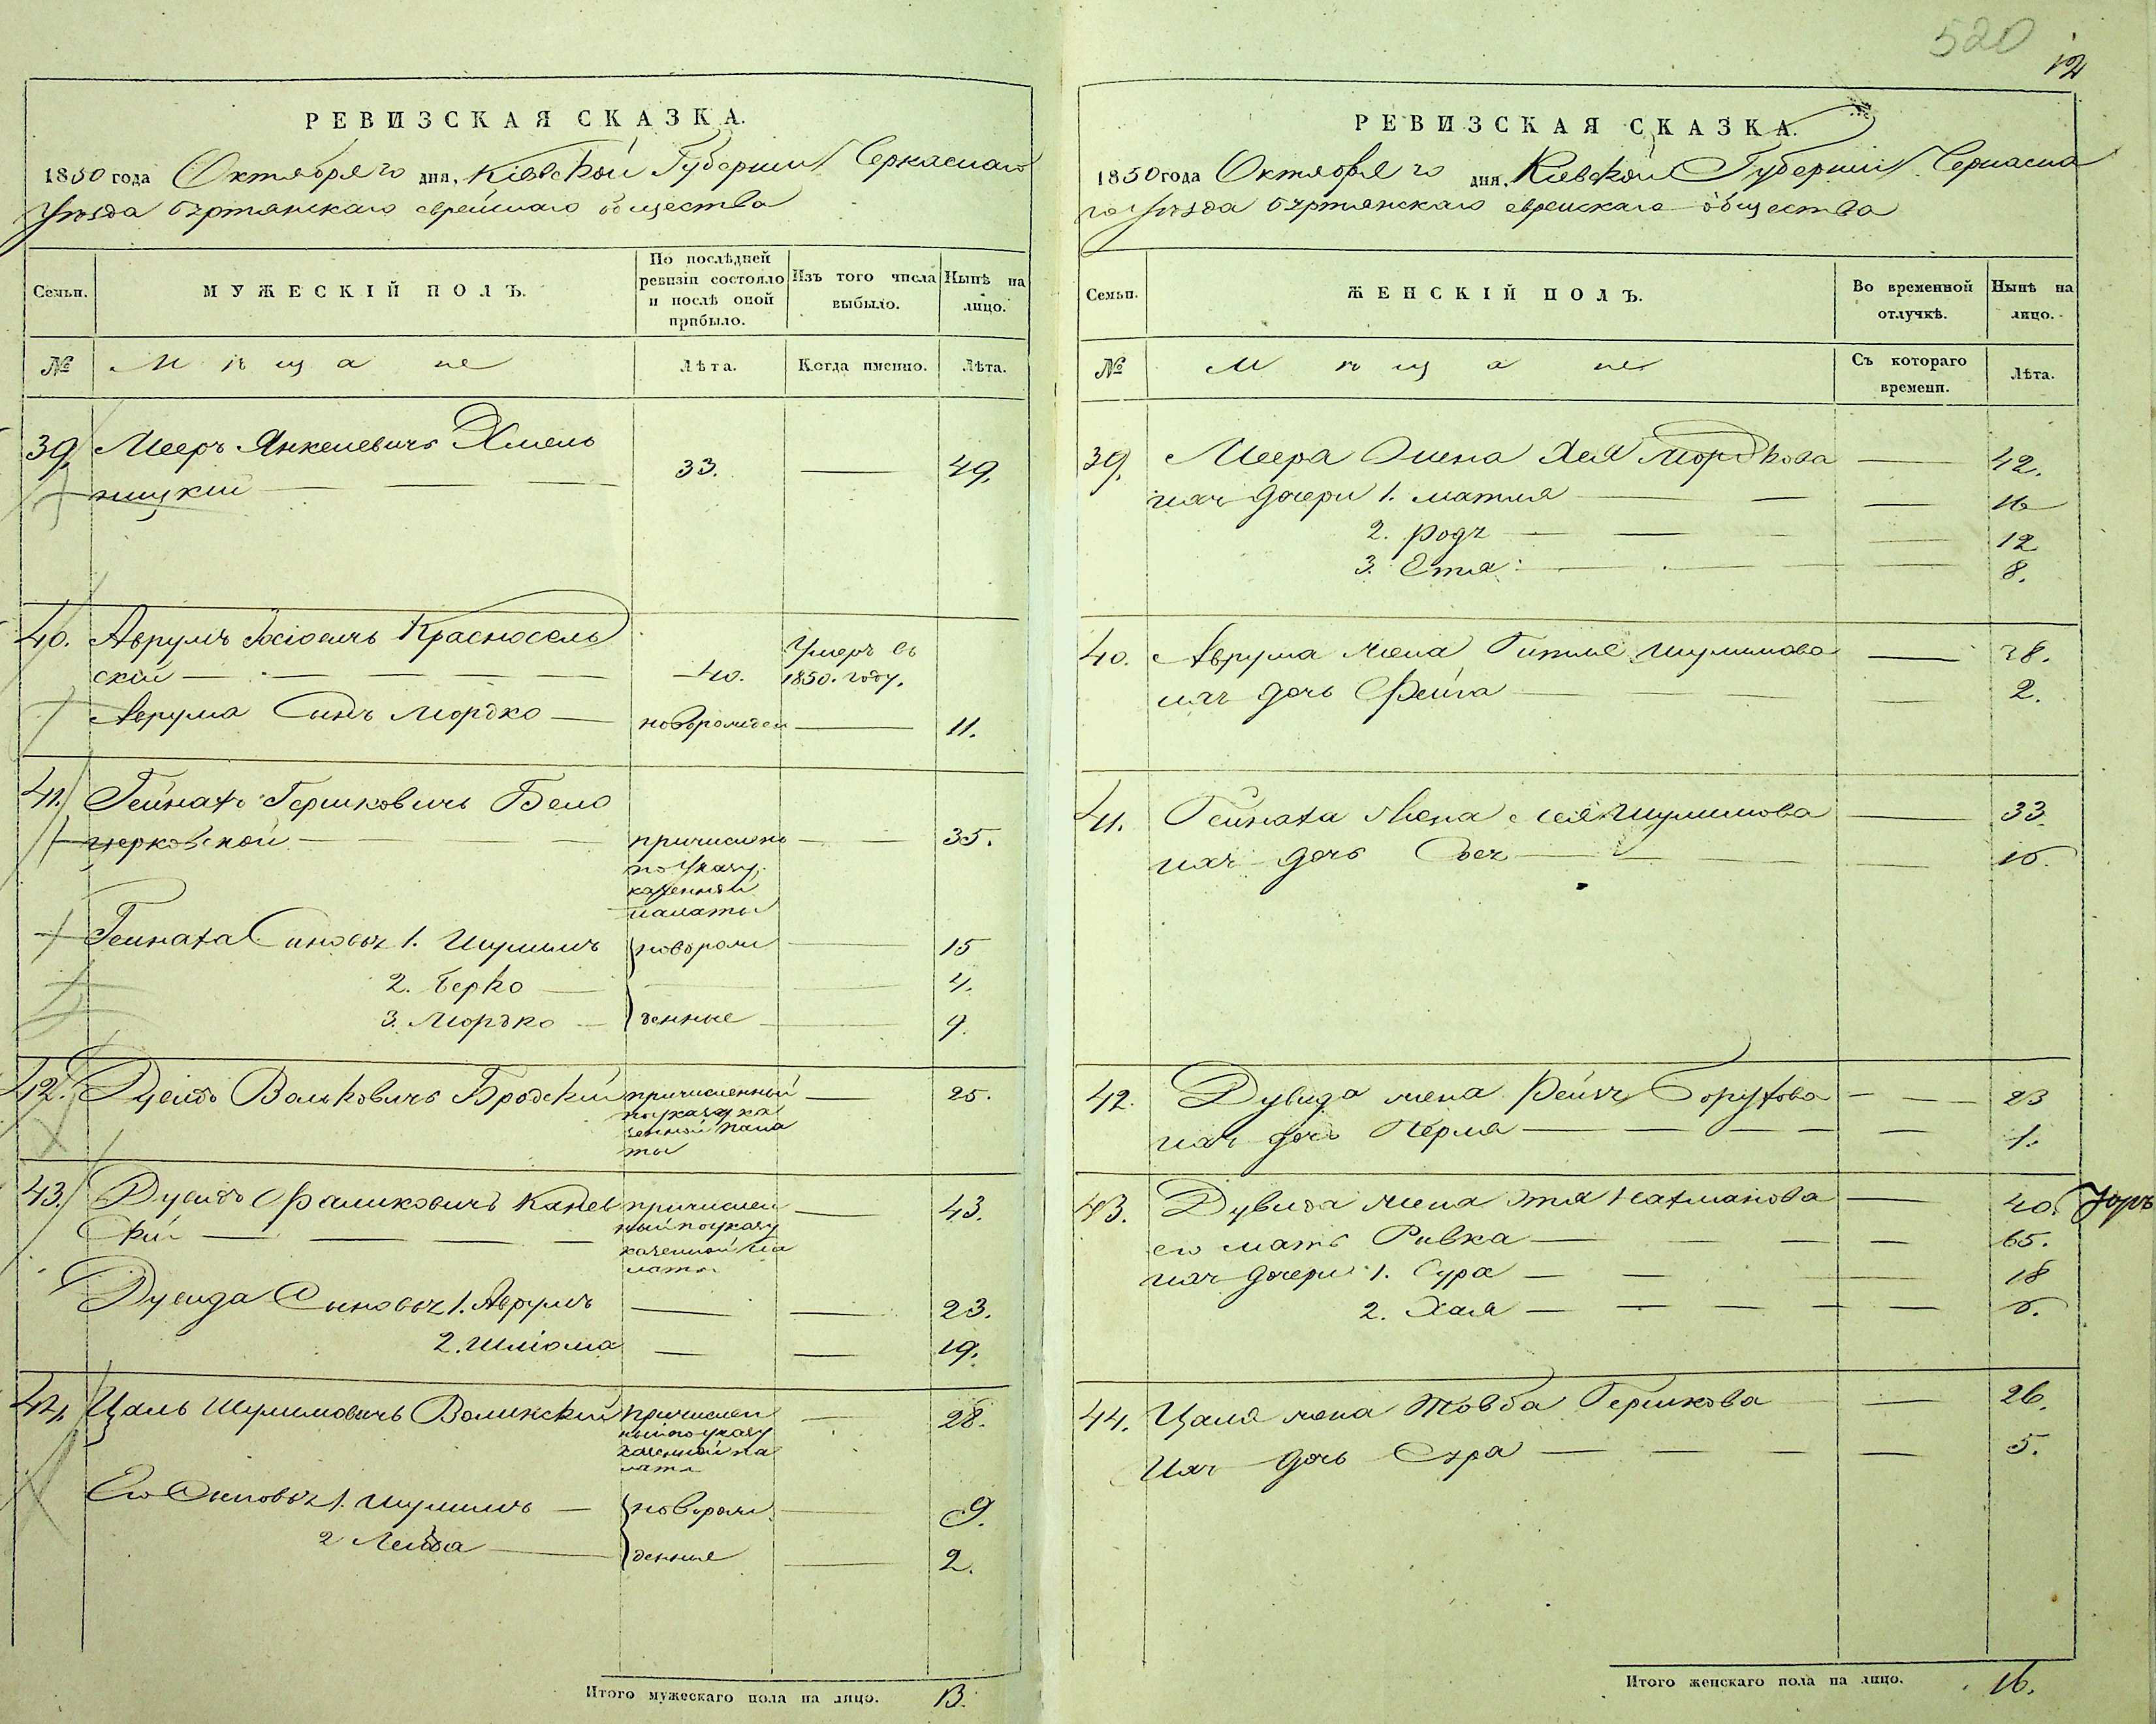 520
12
РЕВИЗСКАЯ СКАЗКА.
1850 года Октября 10 дня, Кіевской Губерніи Черкаскаго
Уѣзда бѣртянскаго еврейскаго общества
Семьи.
МУЖЕСКІЙ ПОЛЪ.
По послѣдней ревизіи состояло и послѣ оной прибыло.
Изъ того числа выбыло.
Нынѣ на лицо.
№
Мѣщане
Лѣта.
Когда именно.
Лѣта.
39. Мееръ Янкелевичъ Хмель
ницкій — — — 33. — 49.
40. Аврумъ Іосіовичъ Красносель
скій — — — 40. Умеръ въ 1850. году.
Аврума Сынъ Мордко — новорожден — 11.
41. Гейнахъ Гершковичъ Бело
церковской — — — причисленъ — — 35.
по Указу
казенной
палаты
Гейнаха Сыновья 1. Шулимъ новорож — 15
2. Берко — — — 4.
3. Мордко — денные — 9.
42. Дувидъ Вольковичъ Бродскій причисленный — 25.
по указу ка
зенной пала
ты
43. Дувидъ Фаликовичъ Канев причислен — 43.
скій — — — — ный по указу
казенной па
латы
Дувида Сыновья 1. Аврумъ — — 23.
2. Шліома — — 19.
44. Цаль Шулимовичъ Волинскій причислен — 28.
ный по указу
казенной па
латы
Его Сыновья 1. Шулимъ — новорож — 9.
2 Лейба — денные — 2.
Итого мужескаго пола на лицо. 13.
РЕВИЗСКАЯ СКАЗКА.
1850 года Октября 10 дня, Кіевской Губерніи Черкаска
го Уѣзда бѣртянскаго еврейскаго общества
Семьи.
ЖЕНСКІЙ ПОЛЪ.
Во временной отлучкѣ.
Нынѣ на лицо.
№
Мѣщане
Съ котораго времени.
Лѣта.
39. Меера Жена Хая Мордкова — 42.
ихъ дочери 1. матля — — — 16
2. родя — — — — 12
3. Етля — — — — 8.
40. Аврума жена Гитля Шулимова — 38.
ихъ дочь Фейга — — — — 2.
41. Гейнаха Жена Лея Шулимова — 33.
ихъ дочь
42. Дувида жена Рейзя Борухова — — — 23
ихъ дочь Перля — — — — — 1.
43. Дувида жена Этя Нахманова — 40.
его мать Ривка — — — — 65.
ихъ дочери 1. Сура — — — 18
2. Хая — — — — —
44. Цаля жена Товба Гершкова — — 26.
Ихъ дочь Сура — — — — 5.
Итого женскаго пола на лицо. 16.